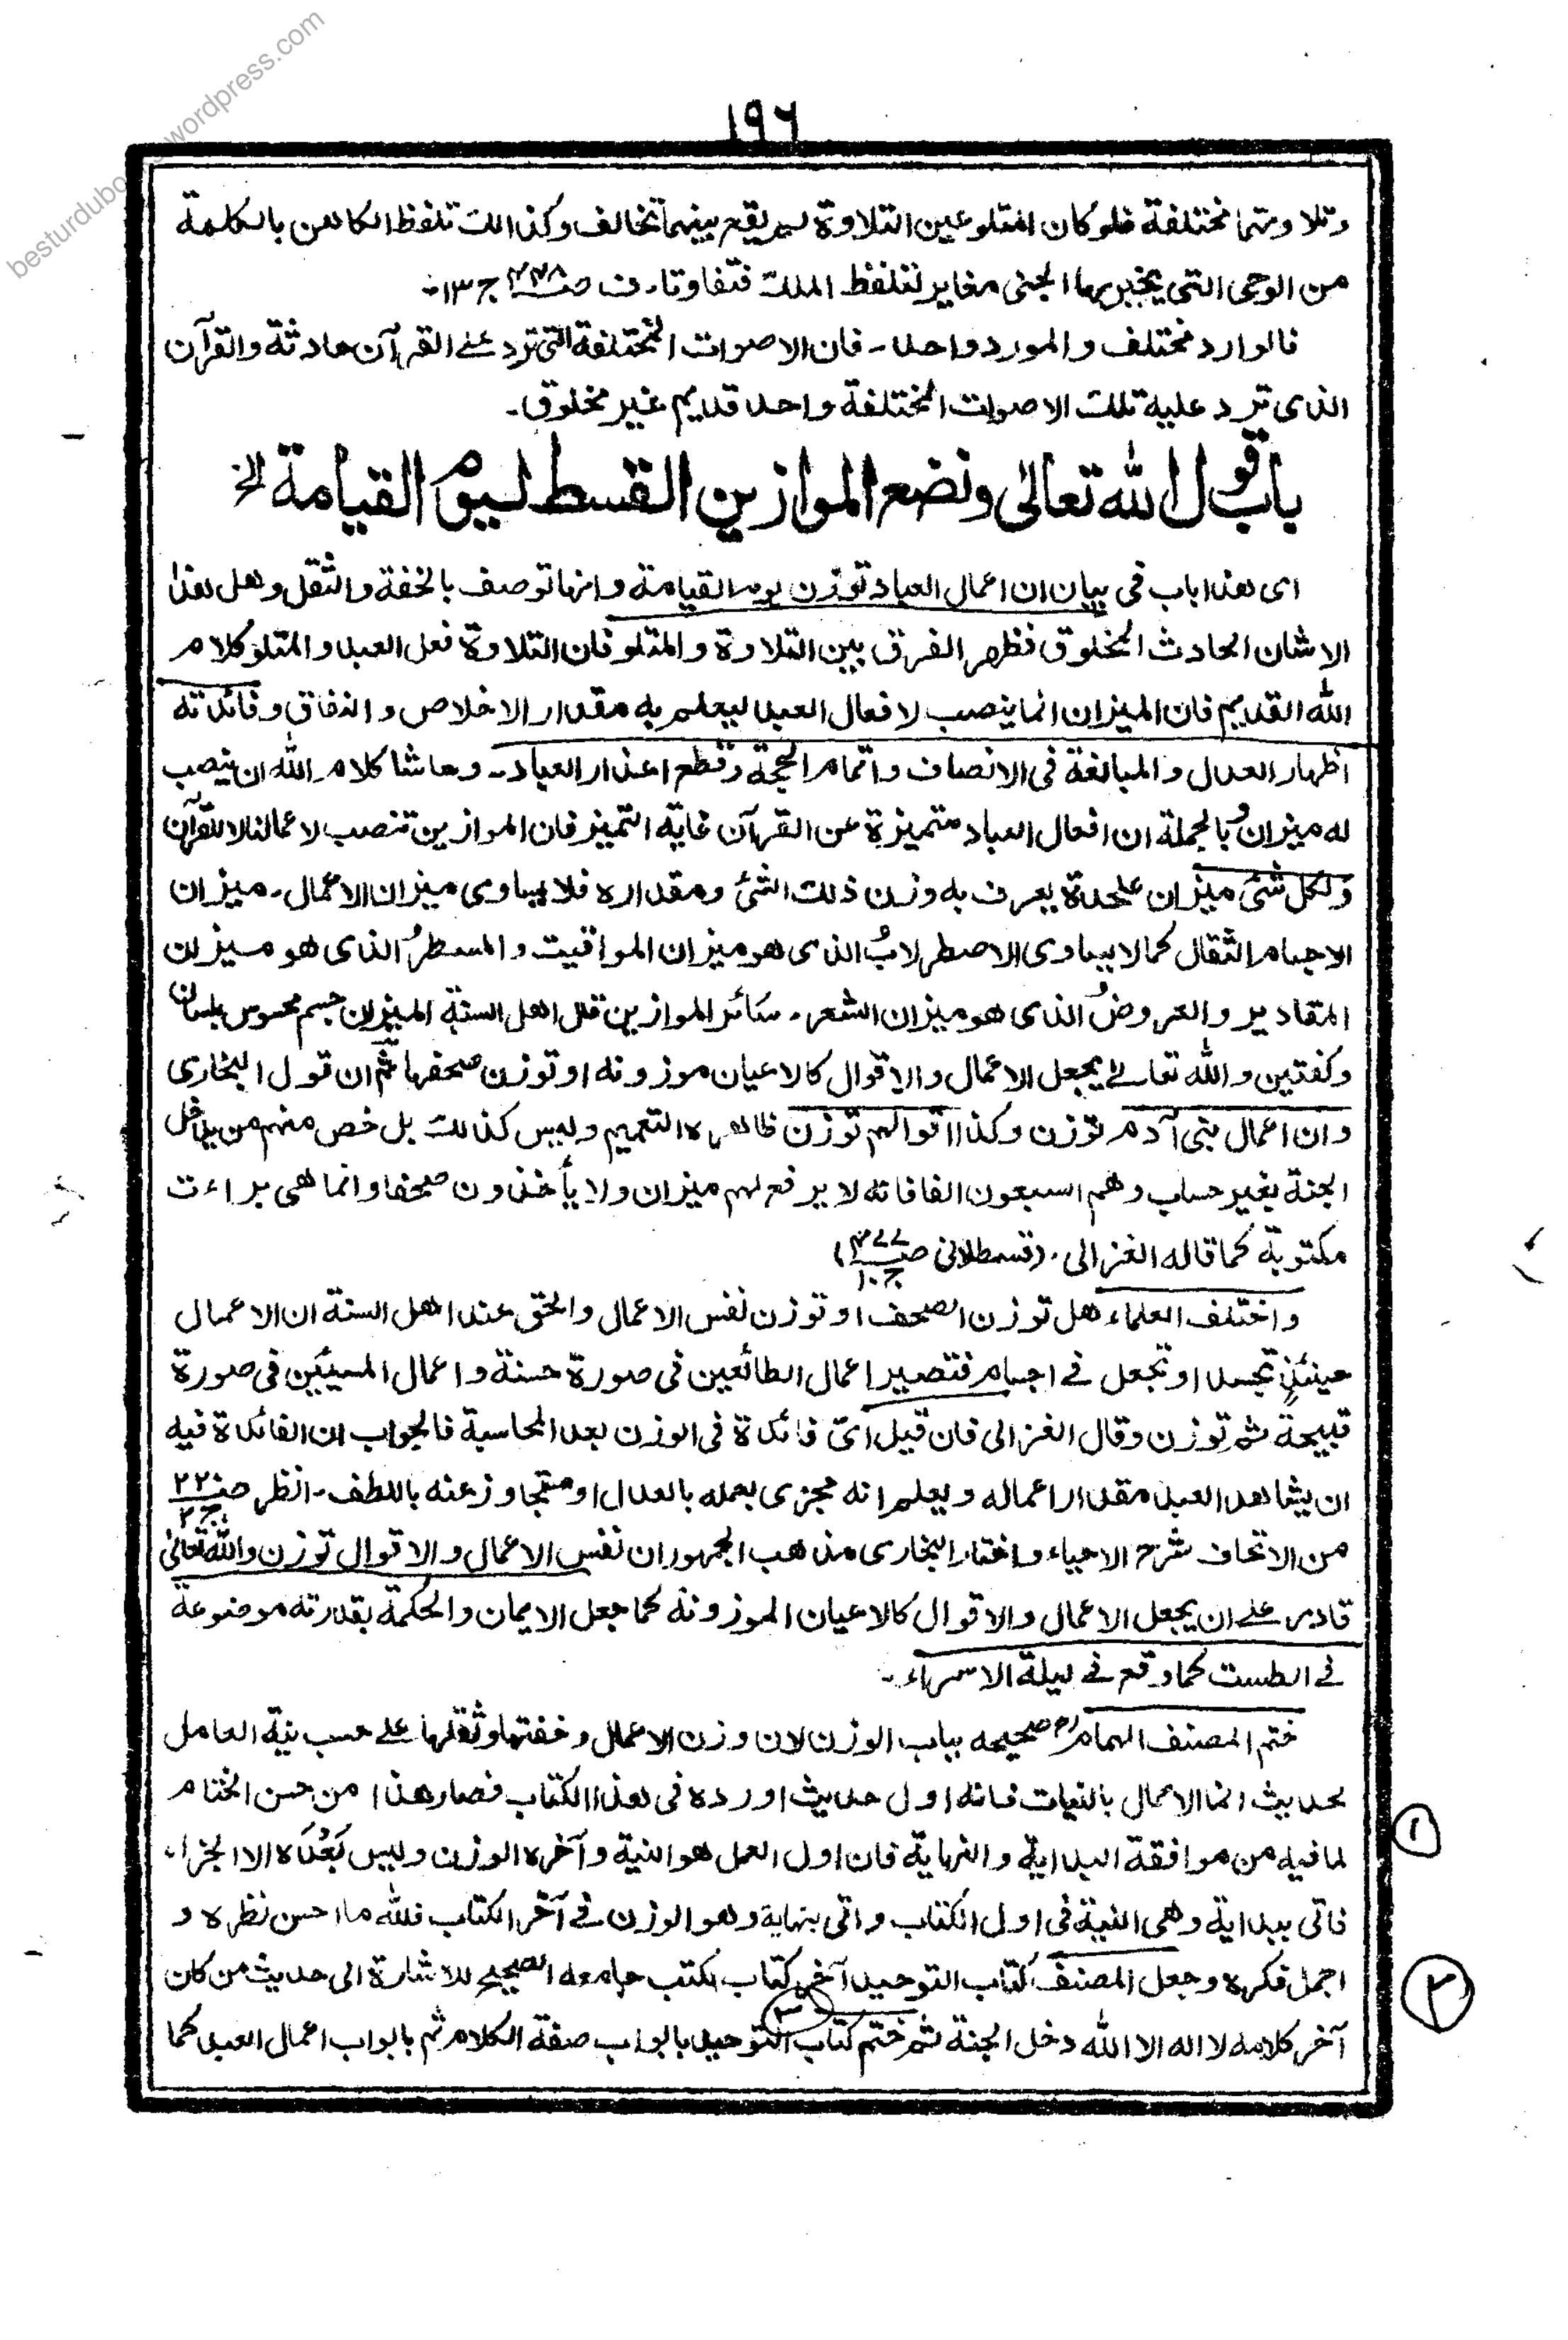 besturdubooks.wordpress.com
١٩٦
وتلاوتهما مختلفة فلو كان المتلو عين التلاوة لم يقع بينهما تخالف وكذالك تلفظ الكاهن بالكلمة
من الوحى التى يخبر بها الجنى مغاير لتلفظ الملك فتفاوتا. ف ج١٣-
فالوارد مختلف والمورد واحد - فان الاصوات المختلفة التى ترد على القرآن حادثة والقرآن
الذى ترد عليه تلك الاصوات المختلفة واحد قديم غير مخلوق-
باب قول الله تعالىٰ ونضع الموازين القسط ليوم القيامة الخ
اى هذا باب فى بيان ان اعمال العباد توزن يوم القيامة وانها توصف بالخفة والثقل وهل هذا
الا شان الحادث المخلوق فظهر الفرق بين التلاوة والمتلو فان التلاوة فعل العبد والمتلو كلام
الله القديم فان الميزان انما ينصب لافعال العبد ليعلم به مقدار الاخلاص والنفاق وفائدته
اظهار العدل والمبالغة فى الانصاف واتمام الحجة وقطع اعذار العباد - وحاشا كلام الله ان ينصب
له ميزان وبالجملة ان افعال العباد متميزة عن القرآن غاية التميز فان الموازين تنصب لاعمالنا لا للقرآن
ولكل شئ ميزان عليحدة يعرف به وزن ذلك الشئ ومقداره فلا يساوى ميزان الاعمال - ميزان
الاجسام الثقال كما لا يساوى الاصطرلاب الذى هو ميزان المواقيت والمسطر الذى هو ميزان
المقادير والعروض الذى هو ميزان الشعر - سائر الموازين قال اهل السنة الميزان جسم محسوس بلسان
وكفتين والله تعالى يجعل الاعمال والاقوال كالاعيان موزونة او توزن صحفها ثم ان قول البخارى
وان اعمال بنى آدم توزن وكذا اقوالهم توزن ظاهره التعميم وليس كذلك بل خص منهم من يدخل
الجنة بغير حساب وهم السبعون الفا فانه لا يرفع لهم ميزان ولا يأخذون صحفا وانما هى براءت
مكتوبة كما قاله الغزالى. (قسطلانى ص٤٧٧ ج١٠)
واختلف العلماء هل توزن الصحف او توزن نفس الاعمال والحق عند اهل السنة ان الاعمال
حينئذٍ تجسد او تجعل فى اجسام فتصير اعمال الطائعين فى صورة حسنة واعمال المسيئين فى صورة
قبيحة ثم توزن وقال الغزالى فان قيل اىّ فائدة فى الوزن بعد المحاسبة فالجواب ان الفائدة فيه
ان يشاهد العبد مقدار اعماله ويعلم انه مجزى بعمله بالعدل او متجاوز عنه باللطف - انظر ص٢٢ ج٢
من الاتحاف شرح الاحياء واختار البخارى مذهب الجمهور ان نفس الاعمال والاقوال توزن والله تعالىٰ
قادر على ان يجعل الاعمال والاقوال كالاعيان الموزونة كما جعل الايمان والحكمة بقدرته موضوعة
فى الطست كما وقع فى ليلة الاسراء -
ختم المصنف الهمام رح صحيحه بباب الوزن لان وزن الاعمال وخفتها وثقلها على حسب نية العامل
لحديث انما الاعمال بالنيات فانه اول حديث اورده فى هذا الكتاب فصار هذا من حسن الختام
لما فيه من موافقة البداية والنهاية فان اول العمل هو النية وآخره الوزن وليس بَعْدَه الا الجزاء
فاتى ببداية وهى النية فى اول الكتاب واتى بنهاية وهو الوزن فى آخر الكتاب فلله ما احسن نظره و
١
اجمل فكره وجعل المصنف كتاب التوحيد آخر كتاب لكتب جامعه الصحيح للاشارة الى حديث من كان
٢
آخر كلامه لا اله الا الله دخل الجنة ثم ختم كتاب التوحيد بابواب صفة الكلام ثم بابواب اعمال العبد كما
٣